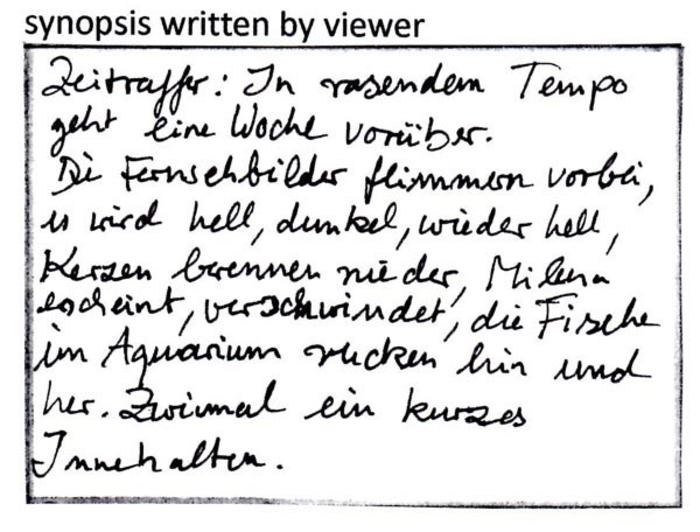 synopsis written by viewer
Zeitraffer: In rasendem Tempo
geht eine Woche vorüber.
Die Fernsehbilder flimmern vorbei,
es wird hell, dunkel, wieder hell,
Kerzen brennen nieder, Milena
escheint, verschwindet, die Fische
im Aquarium rucken hin und
her. Zweimal ein kurzes
Innehalten.